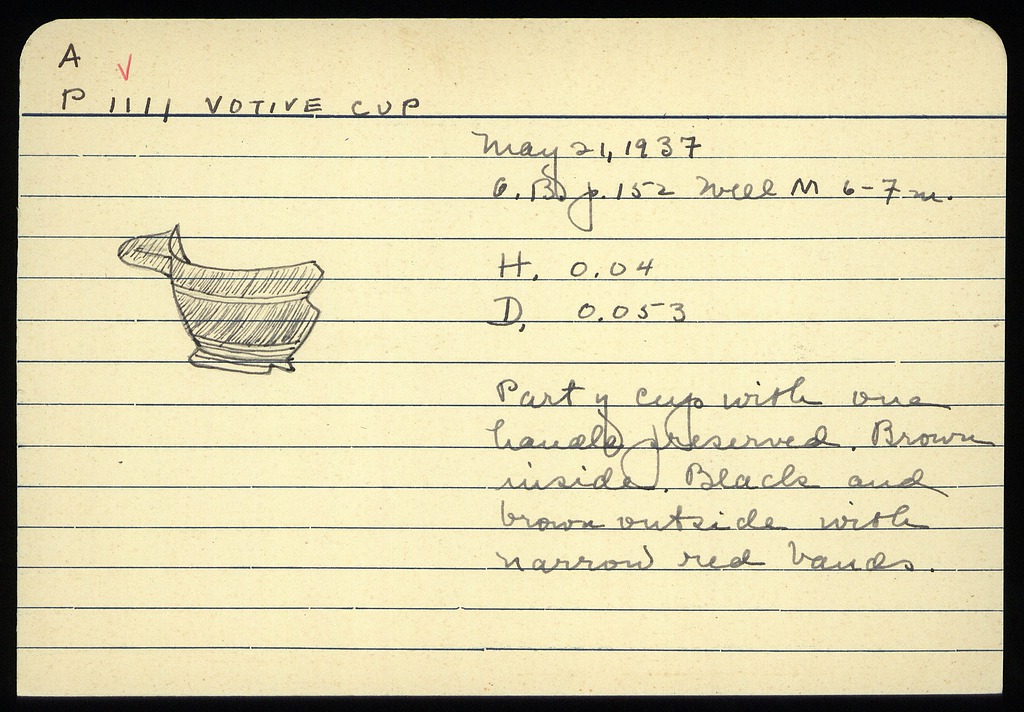 A
P 1111 VOTIVE CUP
May 21, 1937
G.B. p. 152 Well M 6-7 m.
H. 0.04
D. 0.053
Part of cup with one
handle preserved. Brown
inside. Black and
brown outside with
narrow red bands.